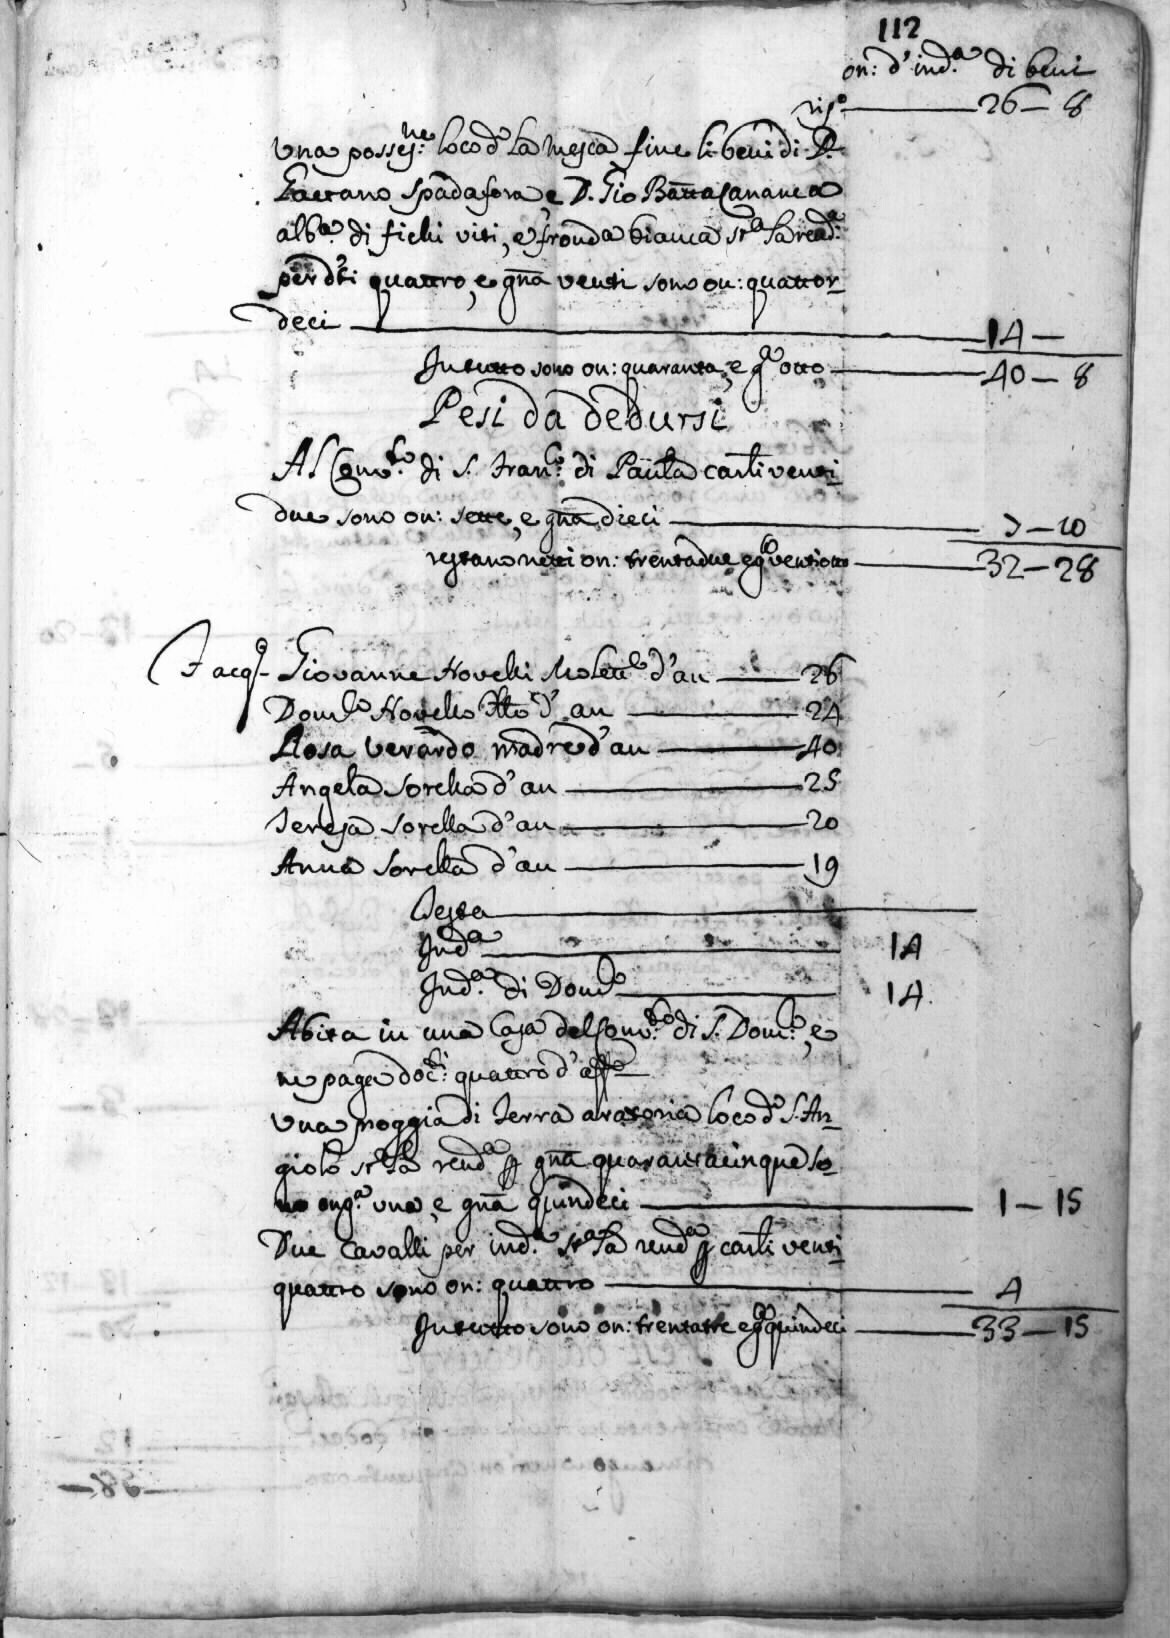 112
on: d'ind.a di beni
rip.o 26-8
Una possess.ne loco d.o La Mesca, fine li beni di D.
Gaetano Spadafora, e D. Gio Batta Cananea
alb.a di fichi viti, e fronda bianca st.a la rend.a
per d.ti quattro, e gna venti sono on: quattor
deci 14-
In tutto sono on: quaranta, e g.a otto 40-8
Pesi da dedursi
Al Conv.to di S. Fran.co di Paula carli venti
due sono on: sette, e gna dieci 7-10
restano netti on: trentadue e g. ventiotto 32-28
Giovanne Novelli d'an 26
Dom.co Novello d'an 24
Rosa Verardo madre d'an 40
Angela sorella d'an 25
Teresa sorella d'an 20
Anna sorella d'an 19
Testa
Ind.a 14
Ind.a di Dom.co 14.
Abita in una Casa del Conv.to di S. Dom.co, e
ne paga doc.ti quattro d'aff.o
Una moggia di Terra aratoria loco d.o S. An
giolo st.a la rend.a p gna quarantacinque so
no ong.a una, e gna quindeci 1-15
Due Cavalli per ind.a st.a la rend.a p carli venti
quattro sono on: quattro 4
In tutto sono on: trentatre e g. quindeci 33-15